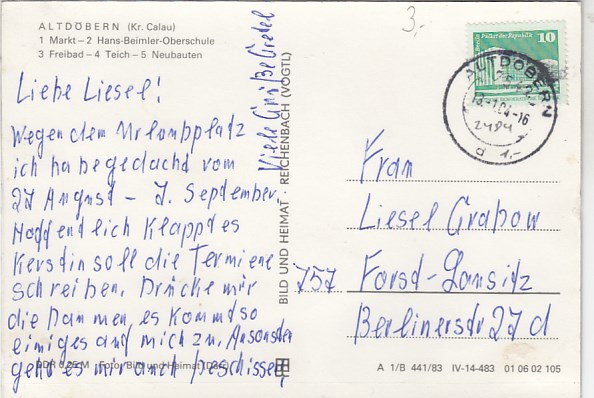 ALTDÖBERN (Kr. Calau)
1 Markt – 2 Hans-Beimler-Oberschule
3 Freibad – 4 Teich – 5 Neubauten
3,-
10
ALTDÖBERN
Liebe Liesel!
Wegen dem Urlaubplatz
ich habe gedacht vom
27 August – 7. September.
Hoffendlich klappt es
Kerstin soll die Termiene
schreiben. Drücke mir
die Daumen, es kommt so
einiges auf mich zu. Ansonsten
geht es mir auch beschissen
Viele Grüße Gretel
BILD UND HEIMAT REICHENBACH (VOGTL)
Frau
Liesel Grabow
757 Forst-Lausitz
Berlinerstr 27 d
DDR 0,25 M Foto: Bild und Heimat
A 1/B 441/83 IV-14-483 01 06 02 105